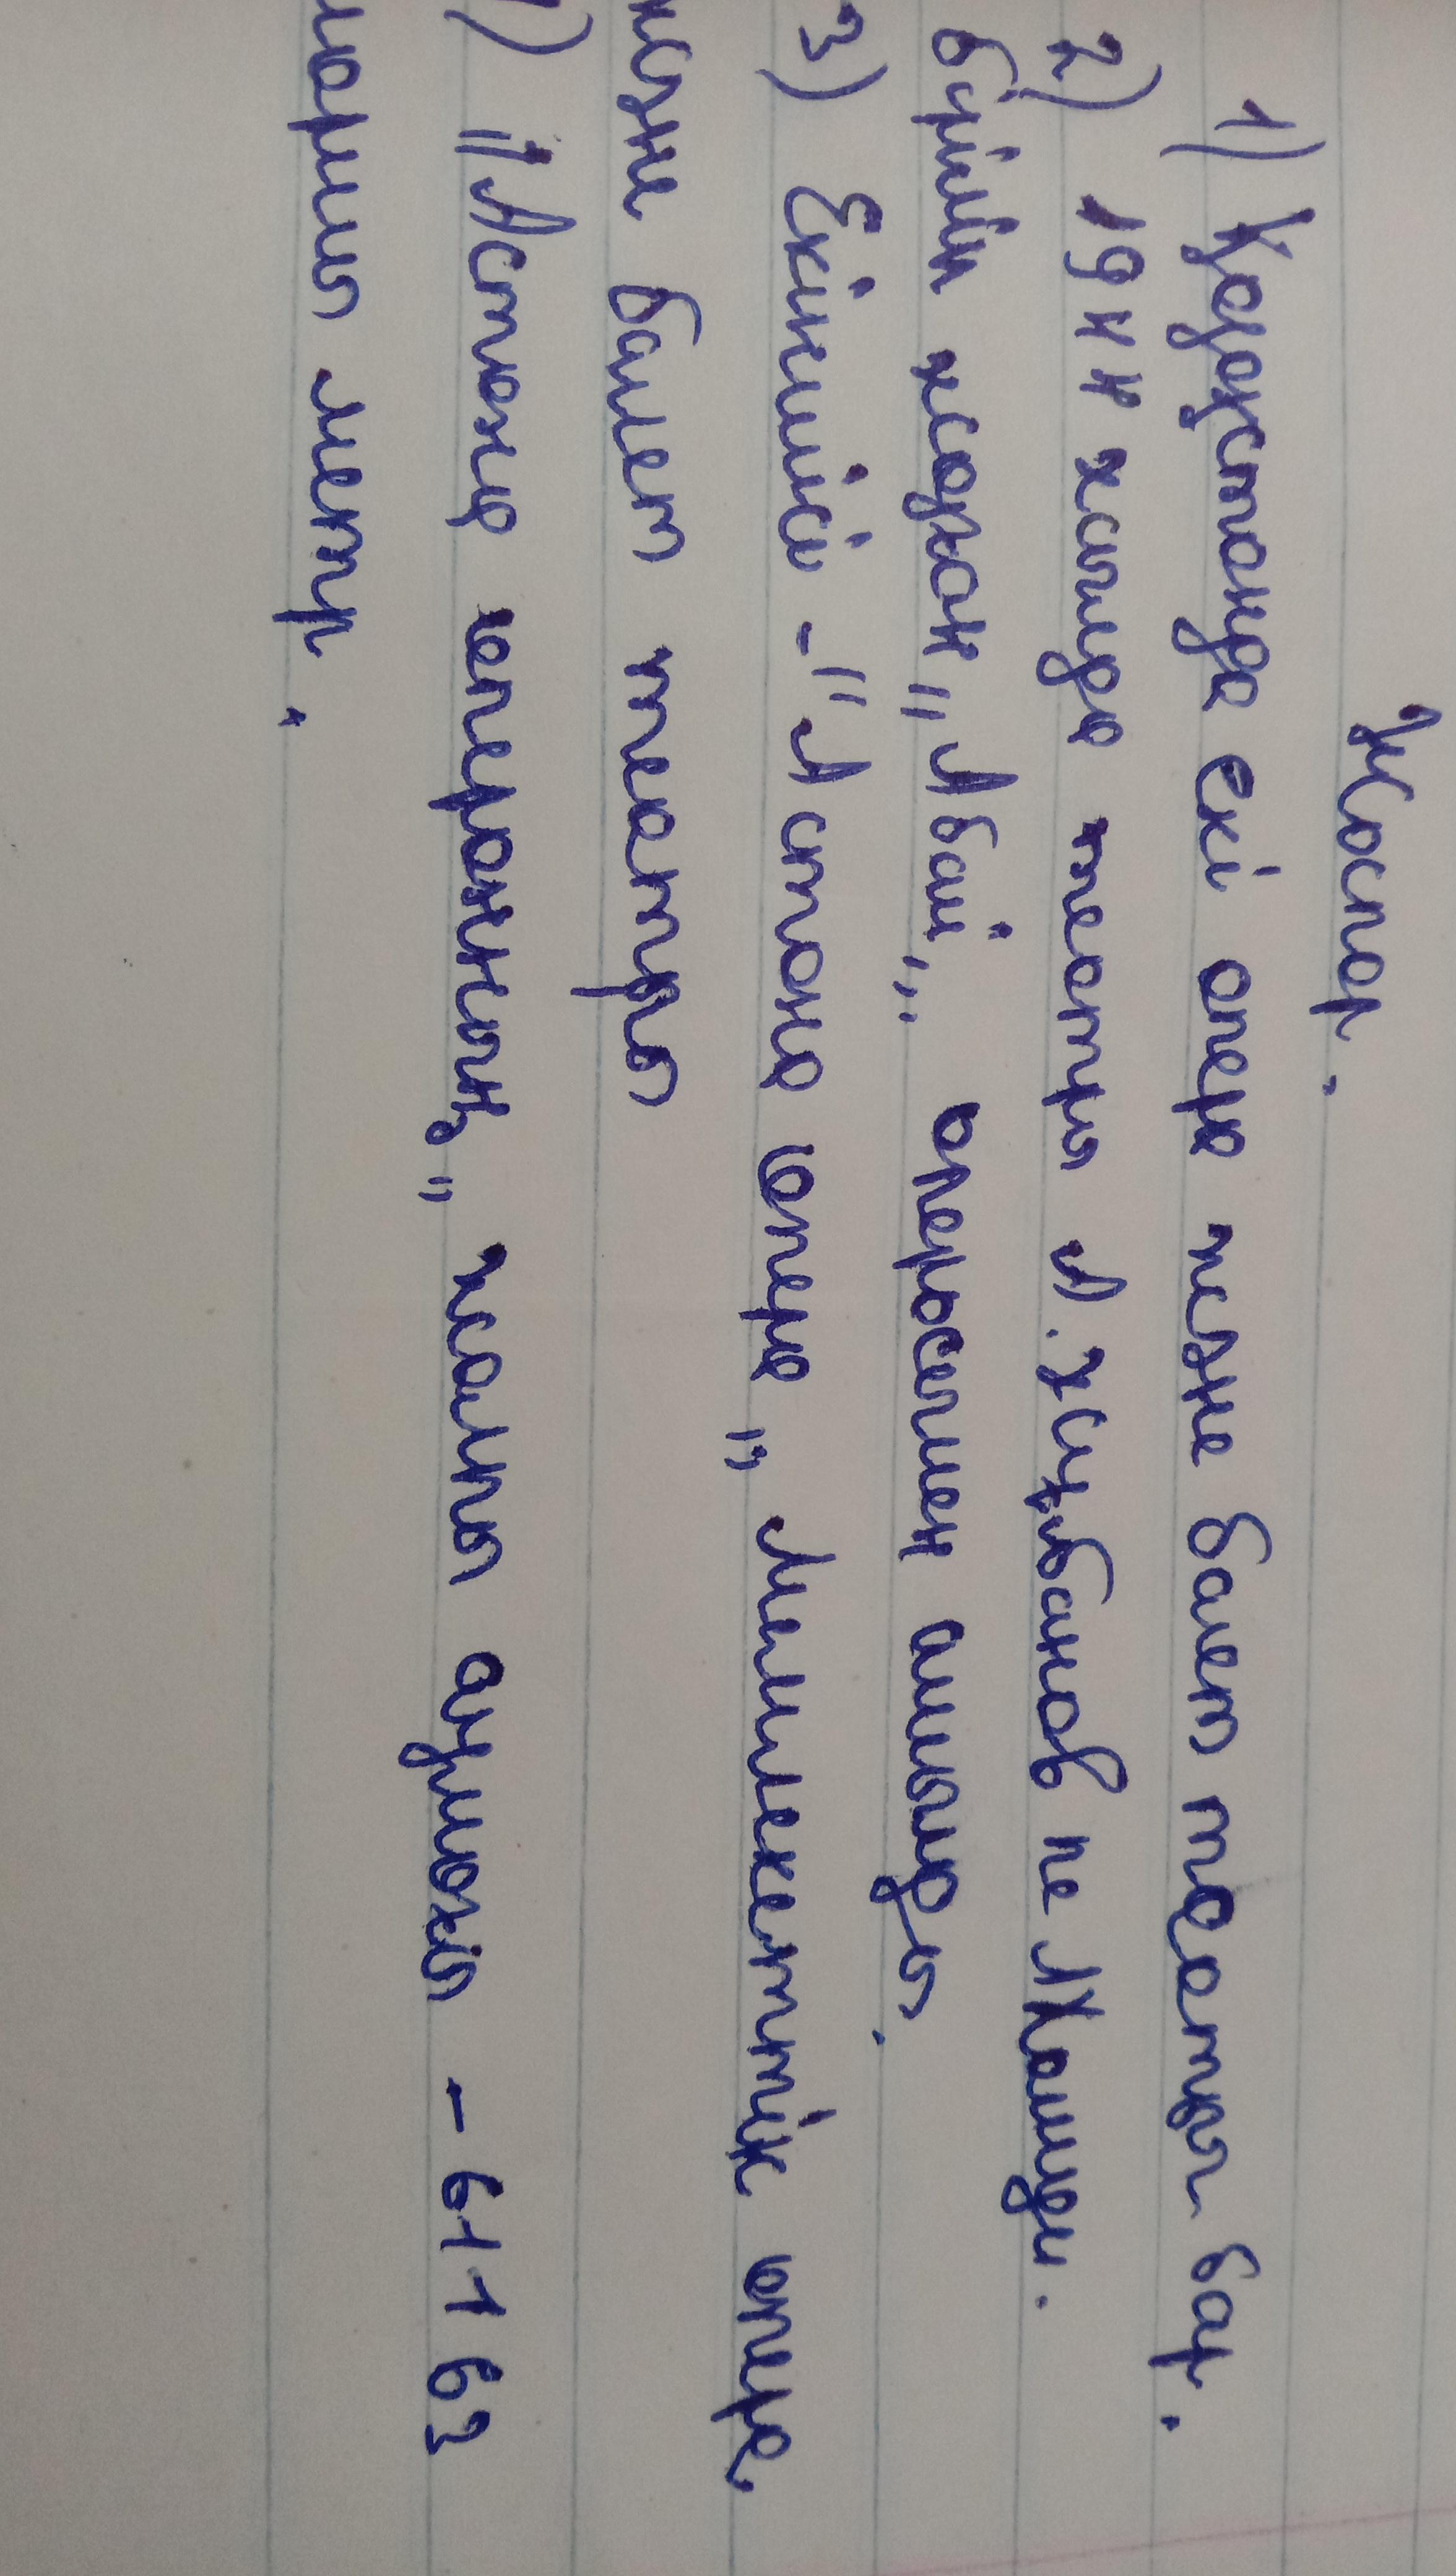 Жоспар.
1) Қазақстанда екі опера және балет театры бар.
2) 1944 жылда театры А. Жұбанов пе Л Хамиди.
бірінін жазған „Абай„ операсымен ашылды.
3) Екіншісі - "Астана опера„ Мемлекеттік опера
және балет театры
) "Астана операның„ жалпы аумағы - 64163
шаршы метр.